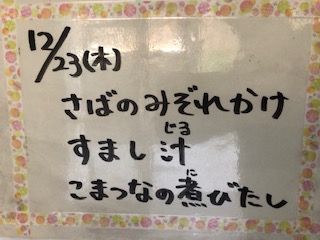 12/23(木)
さばのみぞれかけ
すまし汁
じる
こまつなの煮びたし
に